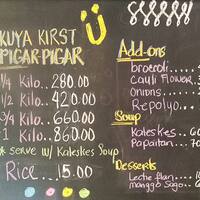 KUYA KIRST
PIGAR-PIGAR
1/4 Kilo...280.00
1/2 Kilo..420.00
3/4 Kilo..660.00
1 Kilo...860.00
* serve w/ Kaleskes Soup
Rice....15.00
Add-ons
broccoli....
Cauli Flower..
Onions.....
Repolyo....
Soup
Kaleskes...60
Papaitan...70
Desserts
Leche flan...
manggo Sago..